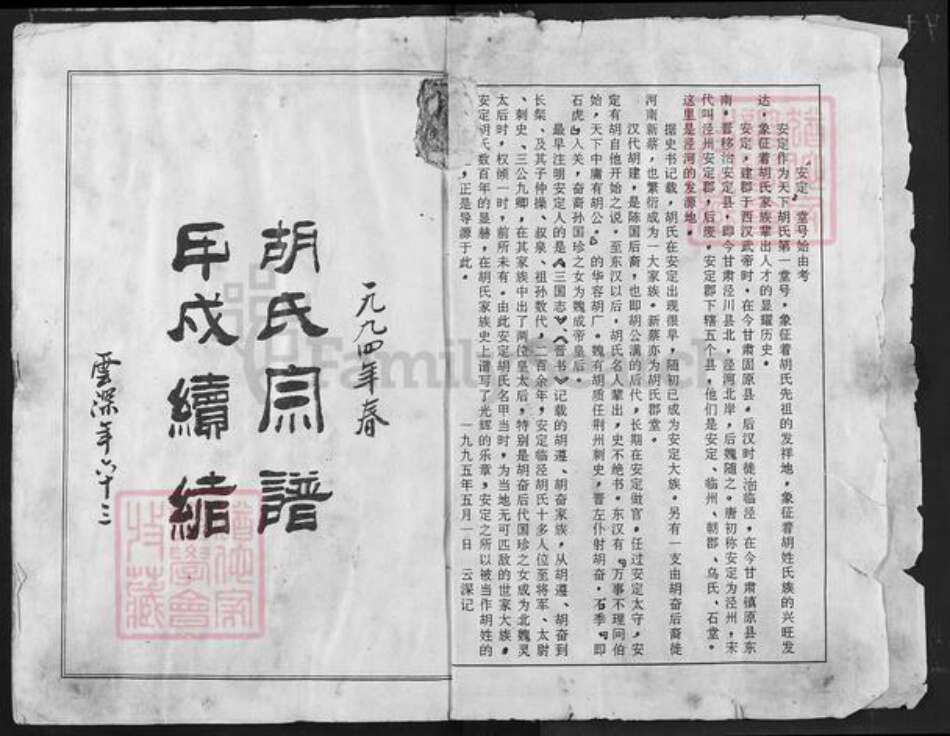 “安定”堂号始由考
安定作为天下胡氏第一堂号，象征着胡氏先祖的发祥地，象征着胡姓氏族的兴旺发
达，象征着胡氏家族辈出人才的显耀历史。
安定，建郡于西汉武帝时，在今甘肃固原县。后汉时徙治临泾，在今甘肃镇原县东
南。晋移治安定县，即今甘肃泾川县北，泾河北岸，后魏随之。唐初称安定为泾州，宋
代叫泾州安定郡，后废。安定郡下辖五个县，他们是安定、临州、朝郡、乌氏、石堂。
这里是泾河的发源地。
据史书记载，胡氏在安定出现很早，随初已成为安定大族。另有一支由胡奋后裔徙
河南新蔡，也繁衍成为一大家族。新蔡亦为胡氏郡堂。
汉代胡建，是陈国后裔，也即胡公满的后代，长期在安定做官，任过安定太守，安
定有胡自他开始之说。至东汉以后，胡氏名人辈出，史不绝书。东汉有“万事不理问伯
始，天下中庸有胡公。”的华容胡广。魏有胡质任荆州刺史，晋左仆射胡奋。石季“即
石虎”人关，奋裔孙国珍之女为魏成帝皇后。
最早注明安定人的是《三国志》、《晋书》记载的胡遵、胡奋家族，从胡遵、胡奋到
长粲、及其子仲操、叔泉、祖孙数代，二百余年，安定临泾胡氏十多人位至将军、太尉
、刺史、三公九卿，在其家族中出了两位皇太后，特别是胡奋后代国珍之女成为北魏灵
太后时，权倾一时，前所未有。由此安定胡氏名甲当时，为当地无可匹敌的世家大族。
安定胡氏数百年的显赫，在胡氏家族史上谱写了光辉的乐章，安定之所以被当作胡姓的
，正是导源于此。
一九九五年五月一日 云深记
一九九四年春
胡氏宗譜
甲戌續結
雲深年六十三
FamilySearch
收藏
學會